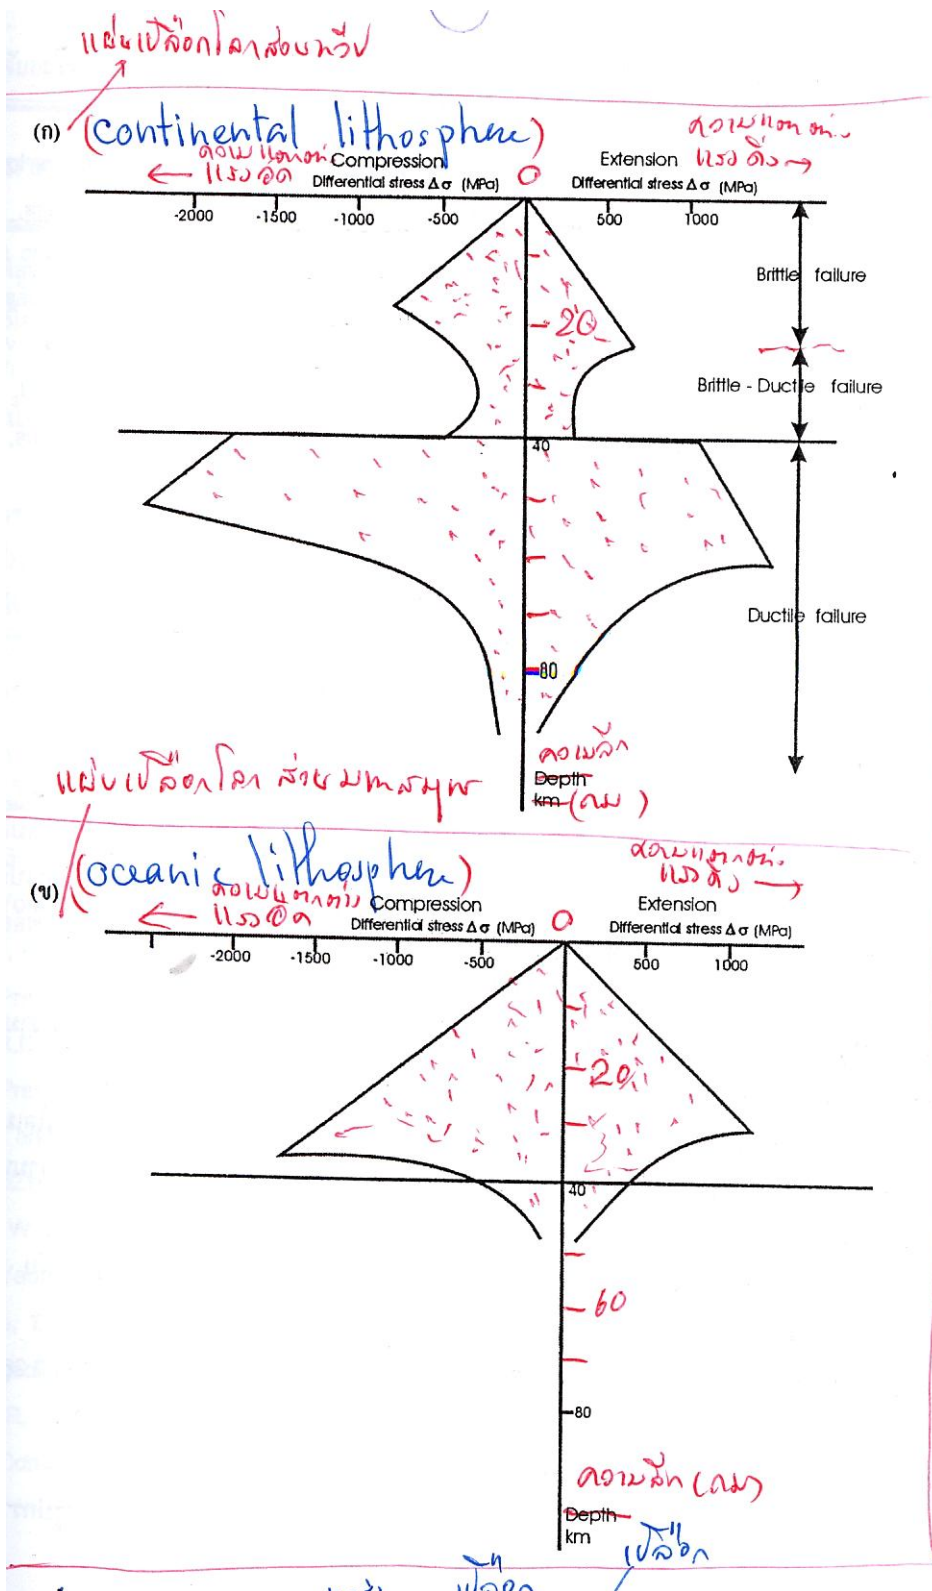 แผ่นเปลือกโลกส่วนทวีป
(ก) (continental lithosphere)
ความแตกต่าง
แรงดึง →
ความแตกต่าง
← แรงอัด
Compression
Differential stress Δσ (MPa)
O
Extension
Differential stress Δσ (MPa)
-2000 -1500 -1000 -500 500 1000
Brittle failure
20
Brittle - Ductile failure
40
Ductile failure
80
ความลึก
Depth
km (กม)
แผ่นเปลือกโลก ส่วนมหาสมุทร
(ข) (oceanic lithosphere)
ความแตกต่าง
แรงดึง →
ความแตกต่าง
← แรงอัด
Compression
Differential stress Δσ (MPa)
O
Extension
Differential stress Δσ (MPa)
-2000 -1500 -1000 -500 500 1000
20
40
60
80
ความลึก (กม)
Depth
km
เปลือก